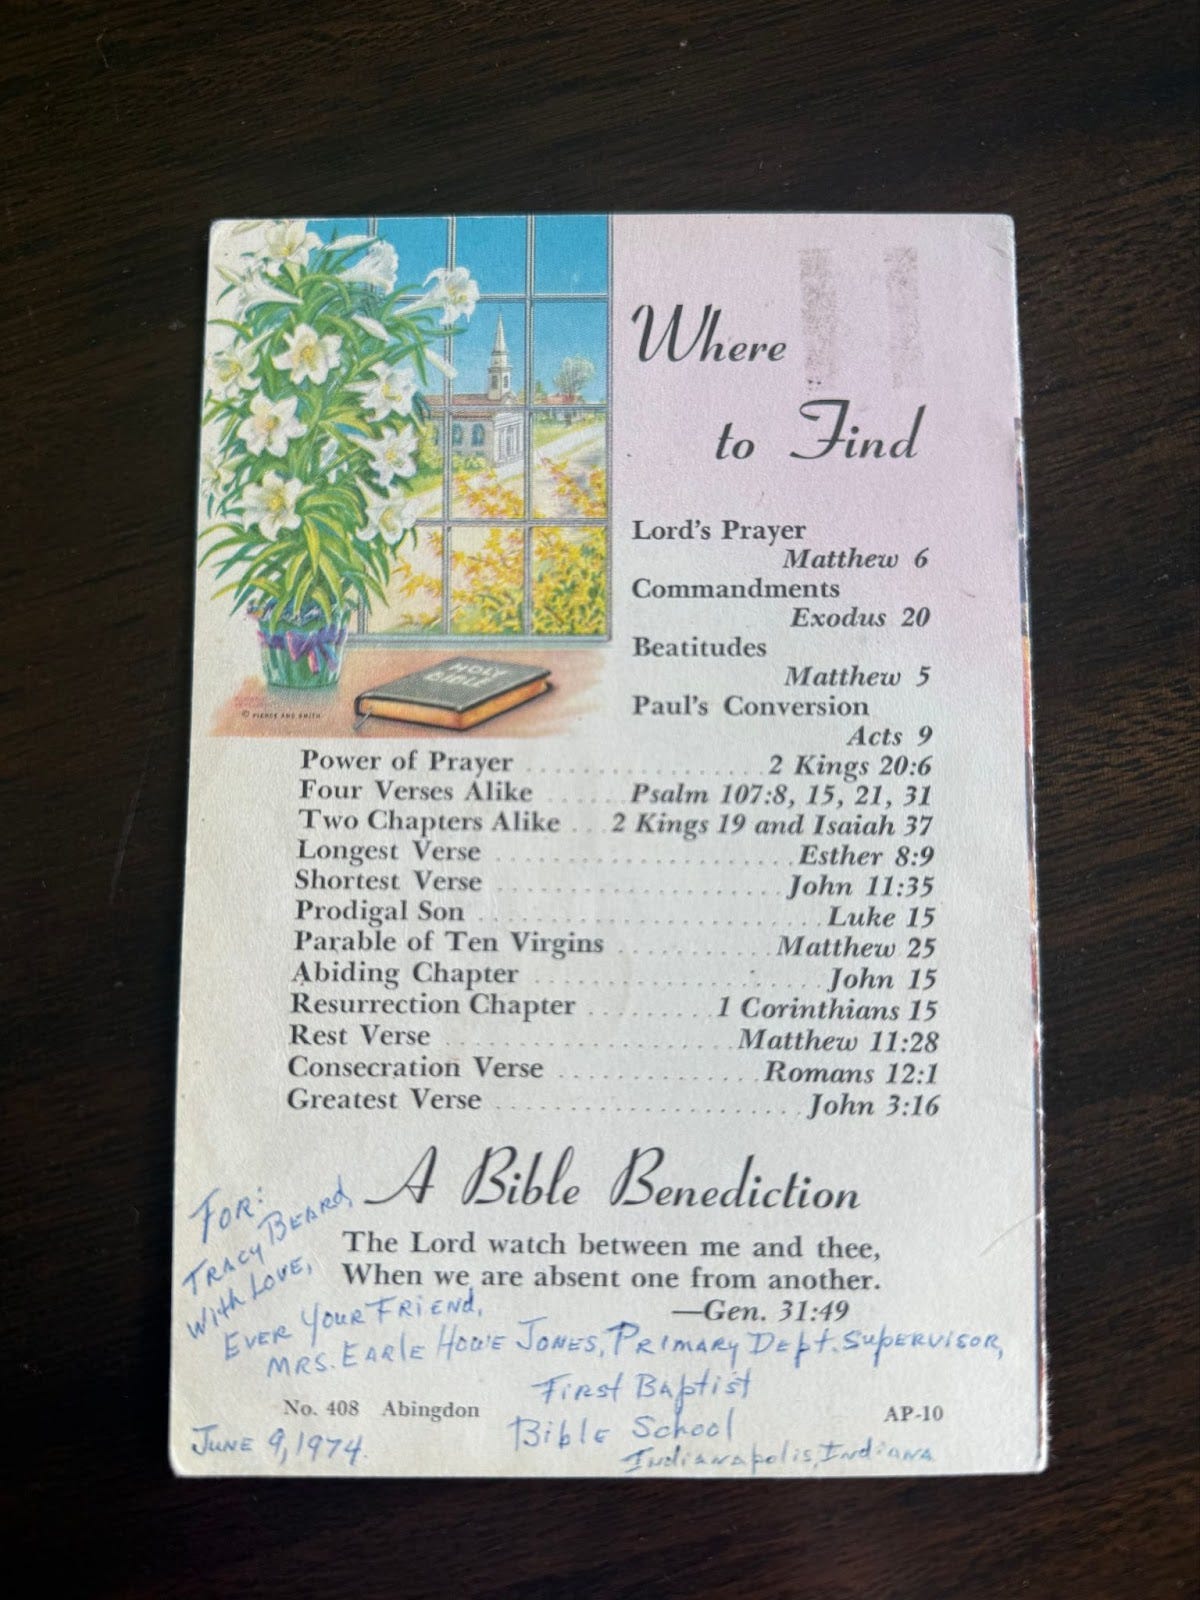 Where
to Find
Lord's Prayer
Matthew 6
Commandments
Exodus 20
Beatitudes
Matthew 5
Paul's Conversion
Acts 9
HOLY
BIBLE
© PIERCE AND SMITH
Power of Prayer ................ 2 Kings 20:6
Four Verses Alike ...... Psalm 107:8, 15, 21, 31
Two Chapters Alike ... 2 Kings 19 and Isaiah 37
Longest Verse .................... Esther 8:9
Shortest Verse ................... John 11:35
Prodigal Son ....................... Luke 15
Parable of Ten Virgins .......... Matthew 25
Abiding Chapter ................... John 15
Resurrection Chapter ......... 1 Corinthians 15
Rest Verse ................... Matthew 11:28
Consecration Verse ............. Romans 12:1
Greatest Verse .................... John 3:16
A Bible Benediction
The Lord watch between me and thee,
When we are absent one from another.
—Gen. 31:49
FOR:
TRACY BEARD,
With LOVE,
EVER YOUR FRIEND,
MRS. EARLE HOWE JONES, PRIMARY DEPT. SUPERVISOR,
FIRST BAPTIST
BIBLE SCHOOL
INDIANAPOLIS, INDIANA
No. 408 Abingdon
AP-10
JUNE 9, 1974.